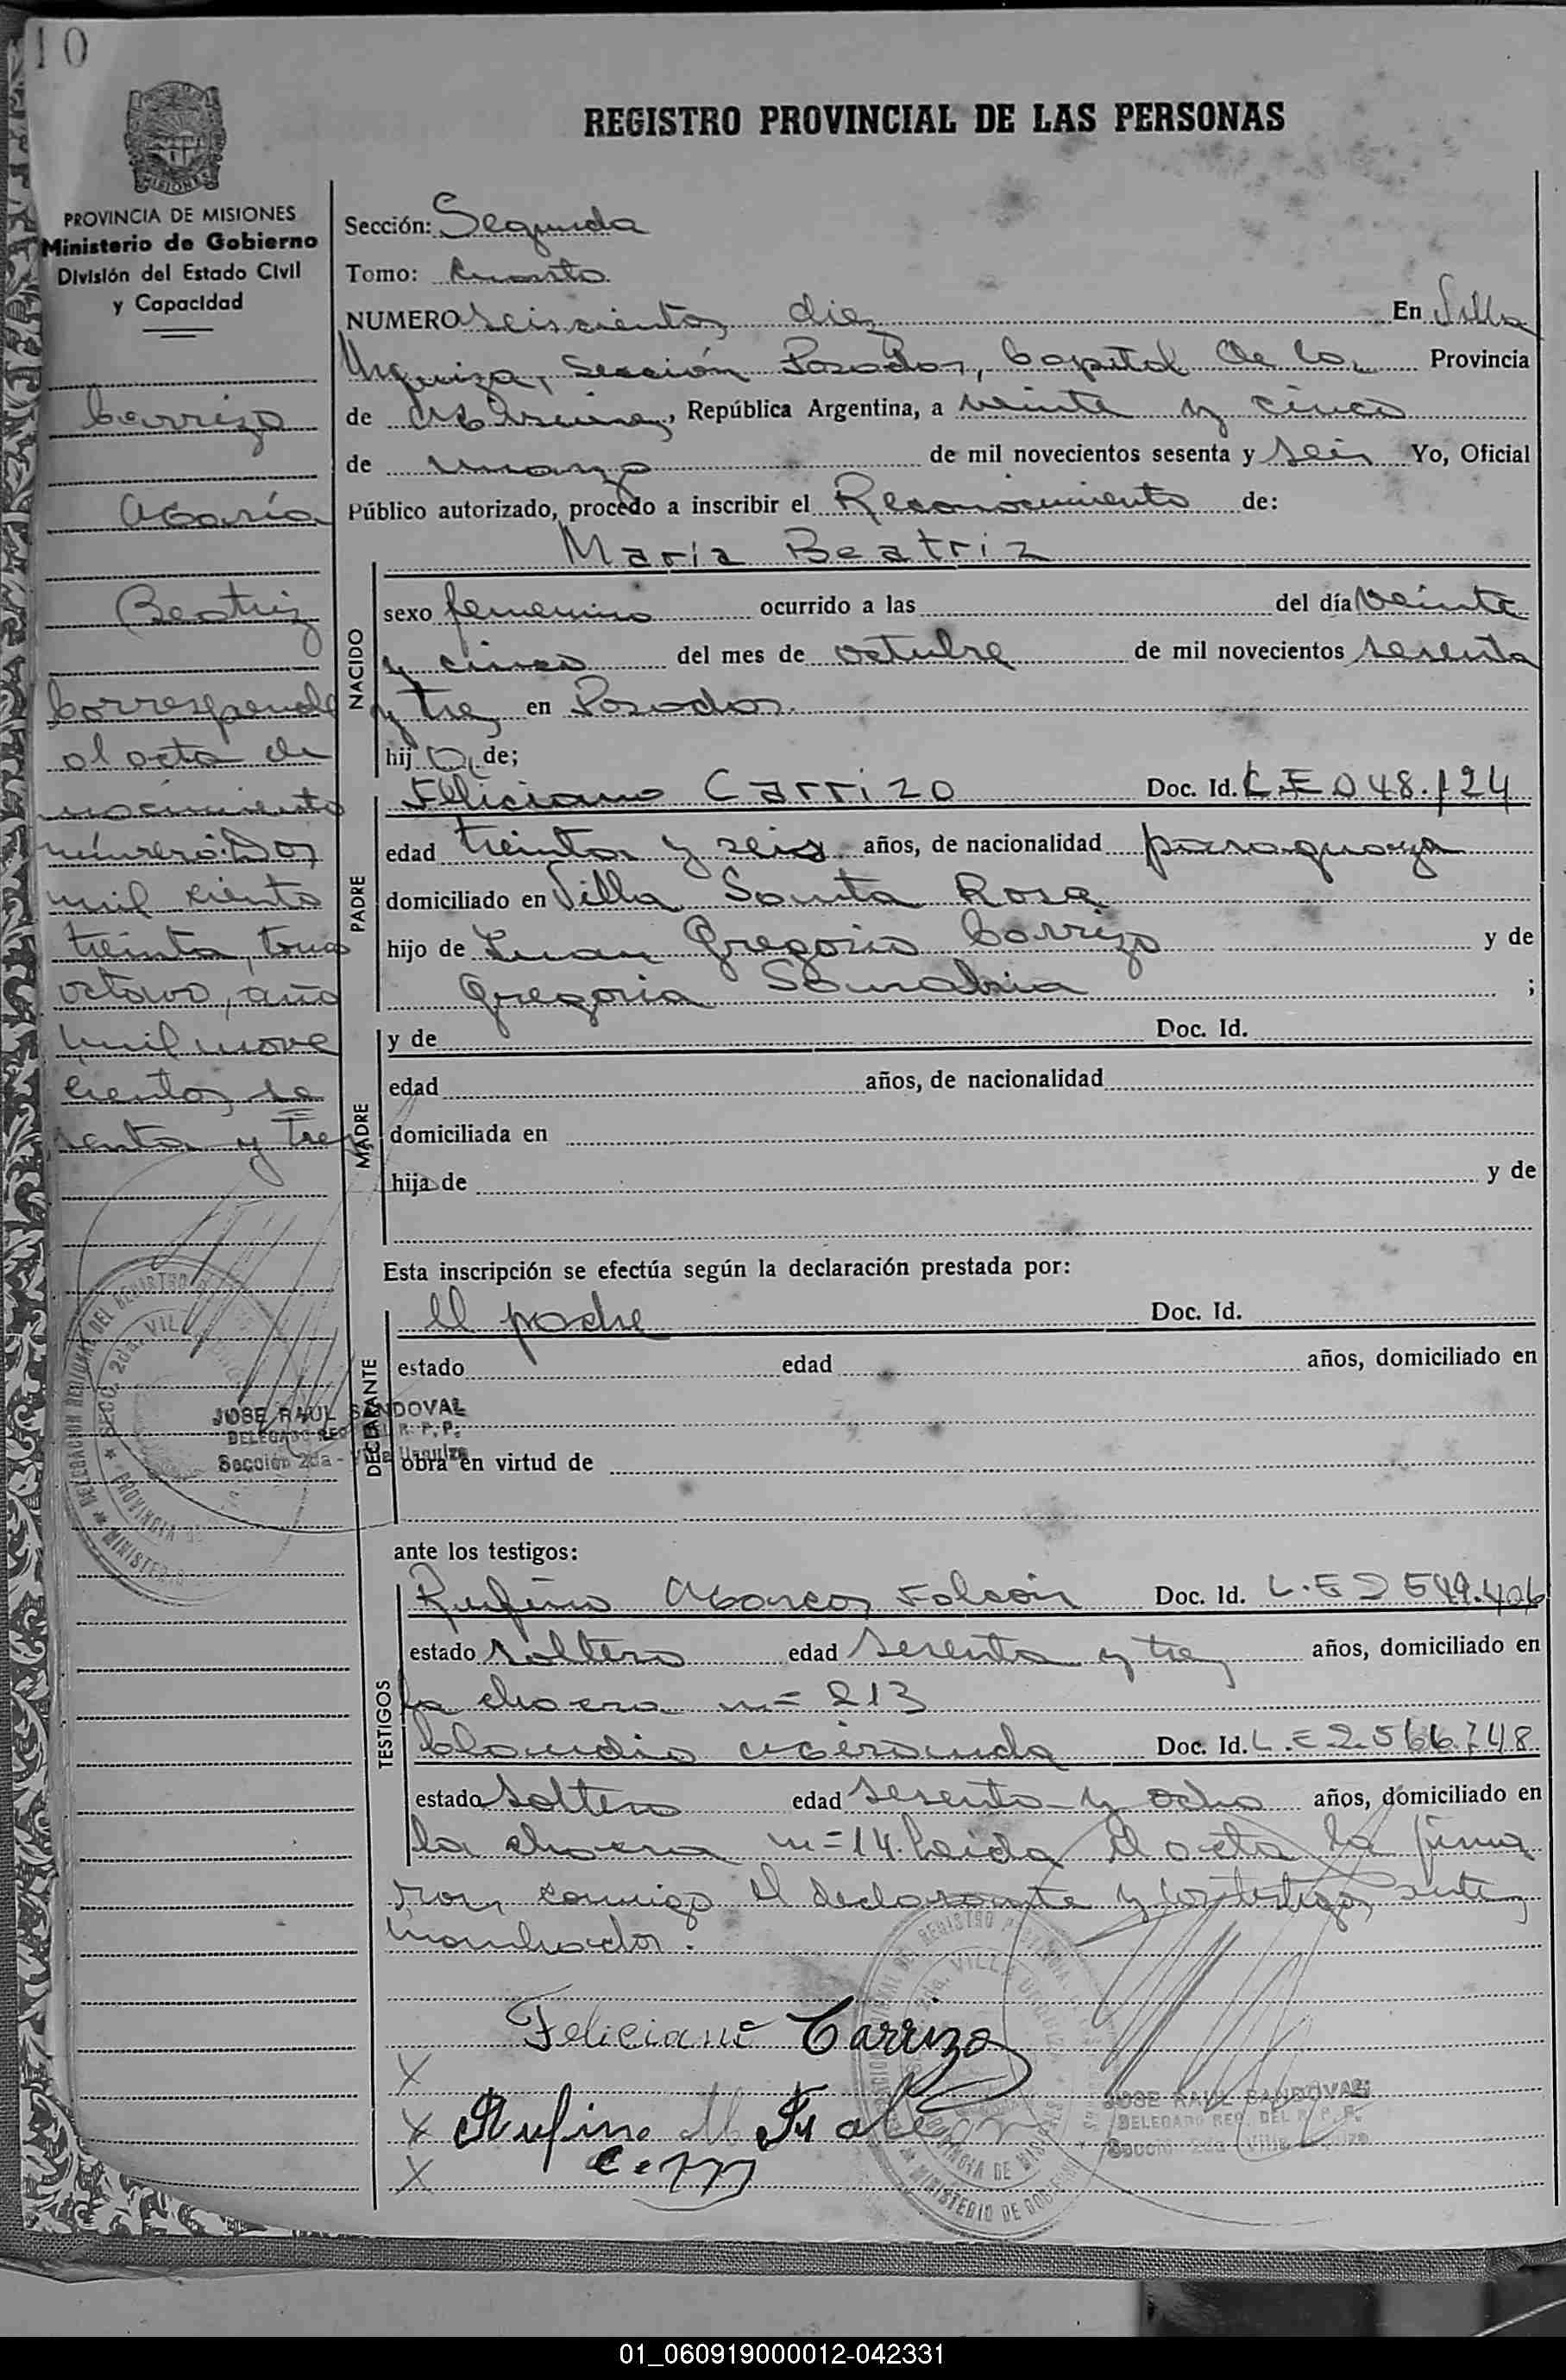 10
REGISTRO PROVINCIAL DE LAS PERSONAS
MISIONES
PROVINCIA DE MISIONES
Ministerio de Gobierno
División del Estado Civil
y Capacidad
Carrizo
María
Beatriz
Corresponde
al acta de
nacimiento
número: Dos
mil ciento
treinta, tomo
octavo, año
mil nove
cientos se
senta y tres
JOSE RAUL SANDOVAL
DELEGADO REG. DEL R. P. P.
Sección 2da - Villa Urquiza
Sección: Segunda
Tomo: Cuarto
NUMERO seiscientos diez En Villa
Urquiza, Sección Posadas, Capital de la Provincia
de Misiones, República Argentina, a veinte y cinco
de marzo de mil novecientos sesenta y seis Yo, Oficial
Público autorizado, procedo a inscribir el Reconocimiento de:
María Beatriz
NACIDO
sexo femenino ocurrido a las del día veinte
y cinco del mes de octubre de mil novecientos sesenta
y tres en Posadas.
hij a de;
PADRE
Feliciano Carrizo Doc. Id. C.I. 048.124
edad treinta y seis años, de nacionalidad paraguaya
domiciliado en Villa Santa Rosa
hijo de Juan Gregorio Carrizo y de
Gregoria Sanabria ;
MADRE
y de Doc. Id.
edad años, de nacionalidad
domiciliada en
hija de y de
Esta inscripción se efectúa según la declaración prestada por:
DECLARANTE
El padre Doc. Id.
estado edad años, domiciliado en
obra en virtud de
ante los testigos:
TESTIGOS
Rufino Marcos Falcón Doc. Id. L.E 2 549.406
estado soltero edad sesenta y tres años, domiciliado en
la chacra n= 213
Claudio Miranda Doc. Id. L.E 2.566.748
estado Soltero edad sesenta y ocho años, domiciliado en
la chacra n=14. Leída el acta la firma
ron, conmigo el declarante y los testigos ante
mencionados.
Feliciano Carrizo
X
X Rufino M Falcon
X C. M
JOSE RAUL SANDOVAL
DELEGADO REG. DEL R. P. P.
Sección 2da Villa Urquiza
01_060919000012-042331